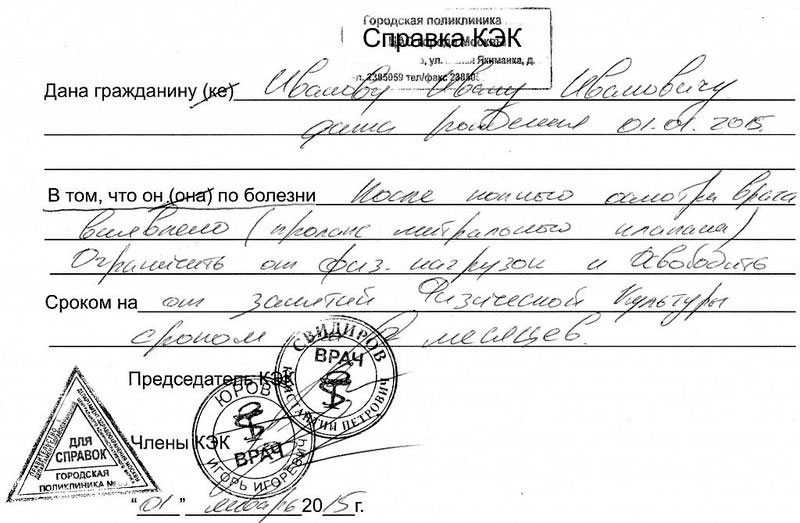 Городская поликлиника
ЦАО города Москвы
Справка КЭК
ул. Якиманка, д.
2385059 тел/факс
Дана гражданину (ке) Иванову Ивану Ивановичу
дата рождения 01.01.2015.
В том, что он (она) по болезни После полного осмотра врача
выявлено (пролапс митрального клапана)
Ограничить от физ. нагрузок и Освободить
Сроком на от занятий Физической Культуры
сроком месяцев.
СВИДИРОВ
ВРАЧ
КОНСТАНТИН ПЕТРОВИЧ
Председатель КЭК
ЮРОВ
ВРАЧ
ИГОРЬ ИГОРЕВИЧ
Члены КЭК
ДЛЯ
СПРАВОК
ГОРОДСКАЯ
ПОЛИКЛИНИКА №
"01" январь 2015г.